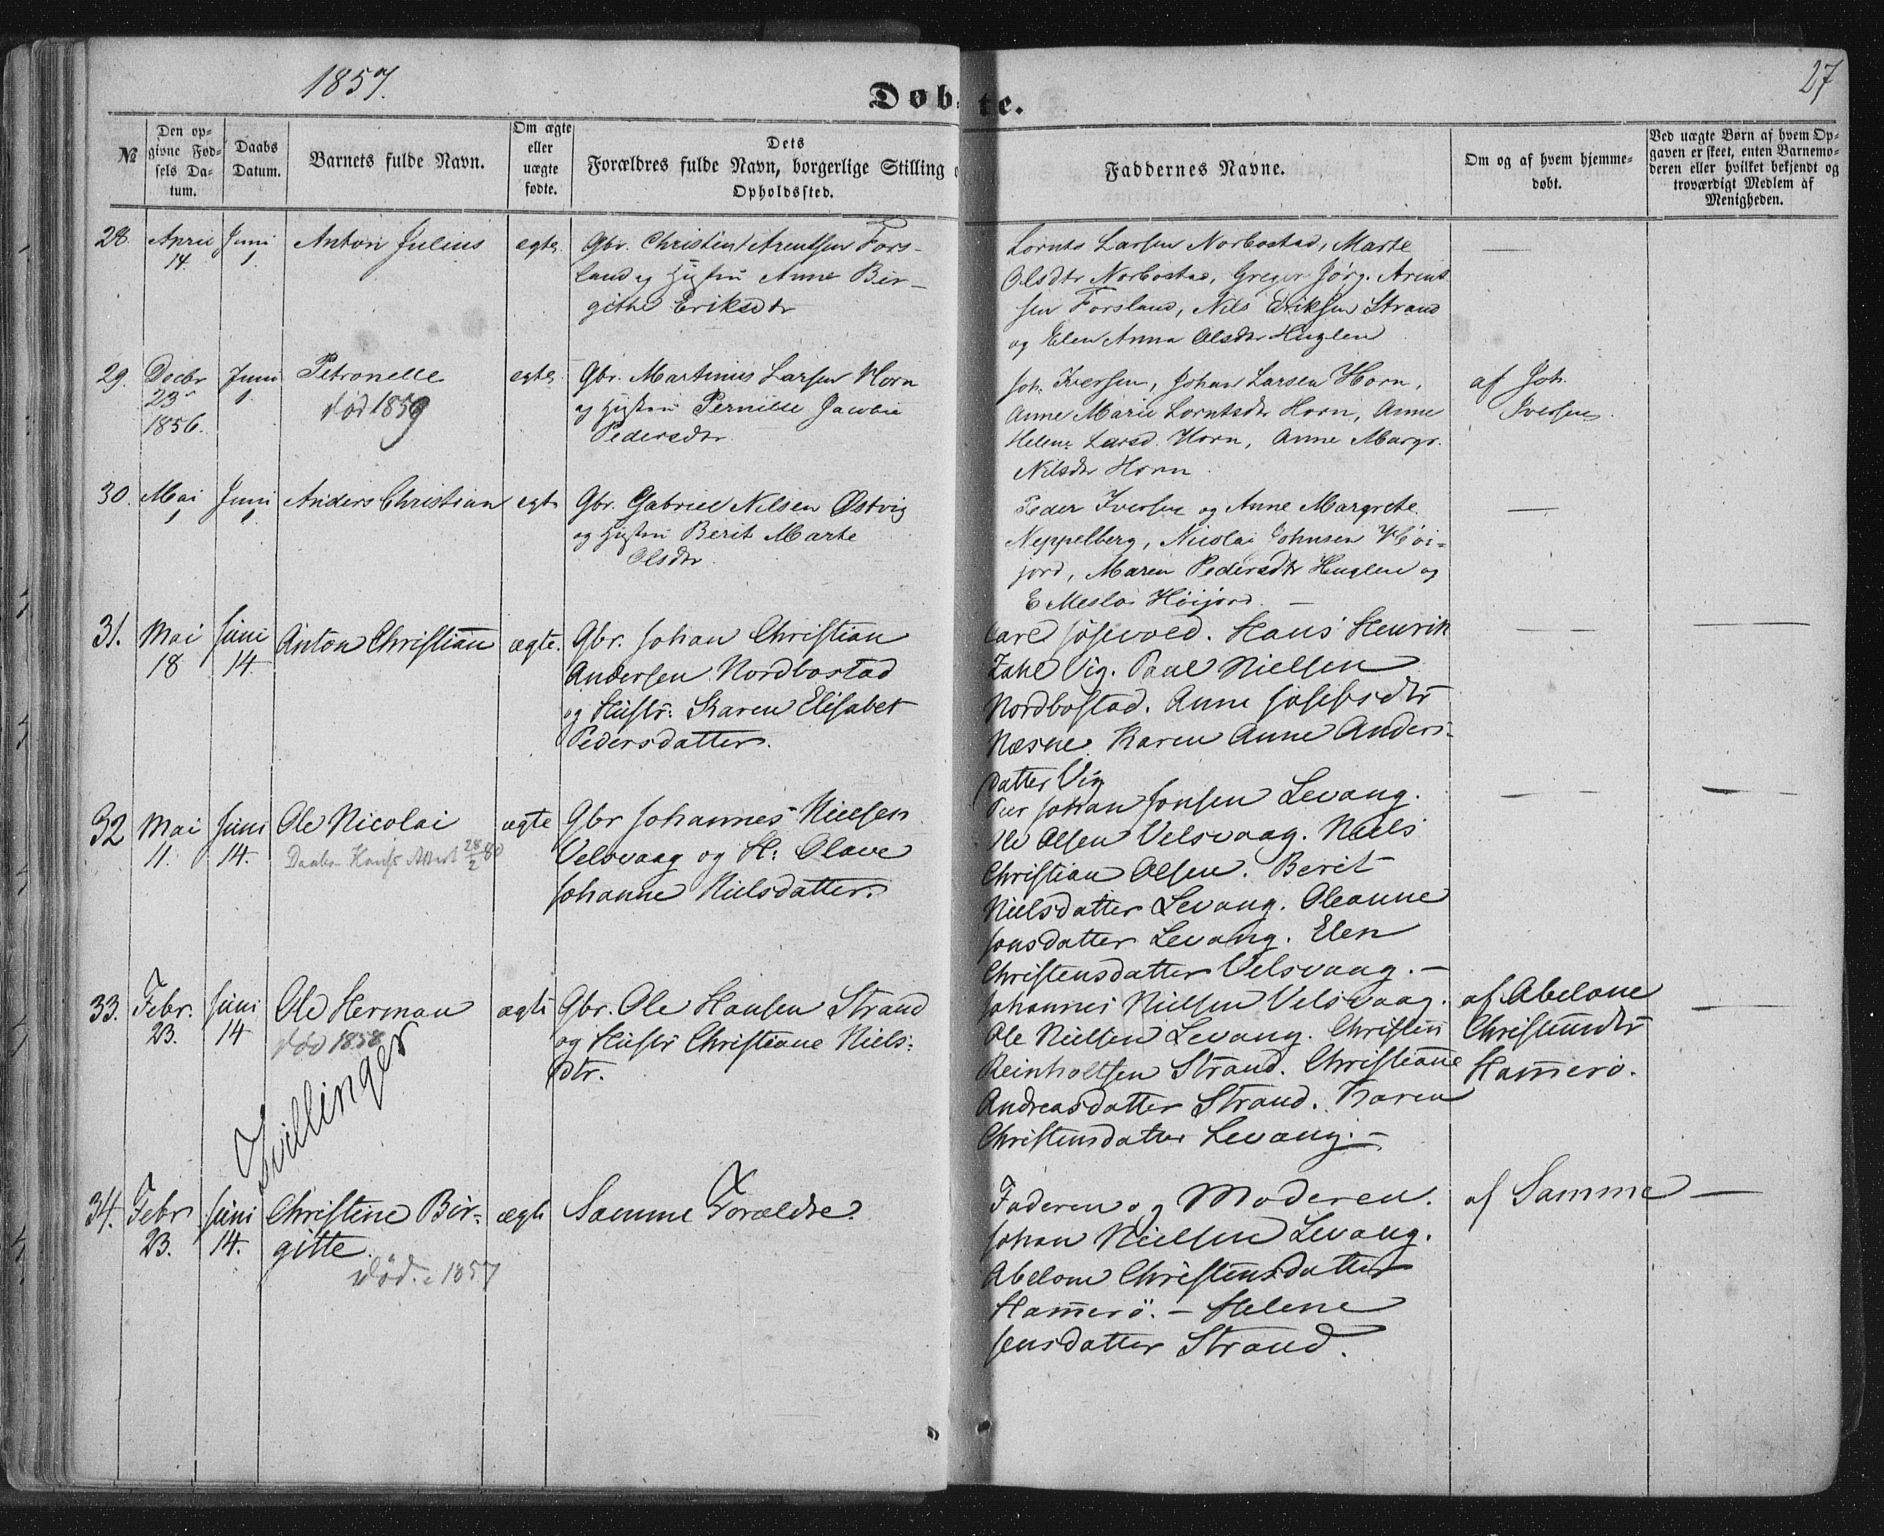 1857.
Døbte.
27
№
Den opgivne Fødsels Datum.
Daabs Datum.
Barnets fulde Navn.
Om ægte eller uægte fødte.
Dets Forældres fulde Navn, borgerlige Stilling
Opholdssted.
Faddernes Navne.
Om og af hvem hjemmedøbt.
Ved uægte Børn af hvem Opgaven er skeet, enten Barnemoderen eller hvilket bekjendt og troværdigt Medlem af Menigheden.
28. April 14. Juni 1 Anton Julius egte
Gbr. Christen Arentsen Fors-
land og Hustru Anne Bir-
gitte Eriksdtr
Lornts Larsen Norbostad, Marte
Olsdtr Norbostad, Greger Jørg. Arent
sen Forsland, Nils Eriksen Strand
og Elen Anna Olsdtr Huglen
—
29. Decbr 23 1856. Juni 1 Petronelle egte
død 1859
Gbr. Martinus Larsen Horn
og Hustru Pernille Jacobie
Pedersdtr
Joh. Iversen, Johan Larsen Horn,
Anne Marie Lorntsdtr Horn, Anne
Helene Larsd. Horn, Anne Margr.
Nilsdtr Horn.
af Joh.
Iversen.
30. Mai 1 Juni 1 Anders Christian egte
Gbr. Gabriel Nilsen Østvig
og Hustru Berit Marte
Olsdtr.
Peder Iversen og Anne Margrete
Neppelberg, Nicolai Johnsen Høi-
jord, Maren Pedersdtr Huglen og
E Høijord. —
—
31. Mai 18 Juni 14. Anton Christian ægte.
Gbr. Johan Christian
Andersen Nordbostad
og Hustr: Karen Elisabet
Pedersdatter.
Carl Hans Henrik
Zahl Vig. Paul Nielsen
Nordbostad. Anne Josefsdtr
Næsne. Karen Anne Anders-
datter Vig
— —
32 Mai 11. Juni 14. Ole Nicolai ægte
Daabs 28/2 80
Gbr Johannes Nielsen
Velsvaag og H: Olave
Johanne Nielsdatter.
Peer Johan Jonsen Levang.
Ole Olsen Velsvaag. Niels
Christian Olsen. Berit
Nielsdatter Levang. Oleanne
Jonsdatter Levang. Elen
Christensdatter Velsvaag. —
— —
33. Febr. 23. Juni 14 Ole Herman ægte
død 1858
Gbr. Ole Hansen Strand
og Hustr Christiane Niels-
dtr.
Johannes Nielsen Velsvaag.
Ole Nielsen Levang. Christen
Reinholtsen Strand. Christianne
Andreasdatter Strand. Karen
Christensdatter Levang. —
af Abelone
Christensdtr
Hamerø.
—
Tvillinger
34. Febr 23. Juni 14. Christine Bir-
gitte. ægte
død. 1857
Samme Forældre.
Faderen og Moderen.
Johan Nielsen Levang.
Abelone Christensdatter
Hamerö. — Helene
Jensdatter Strand.
af Samme —